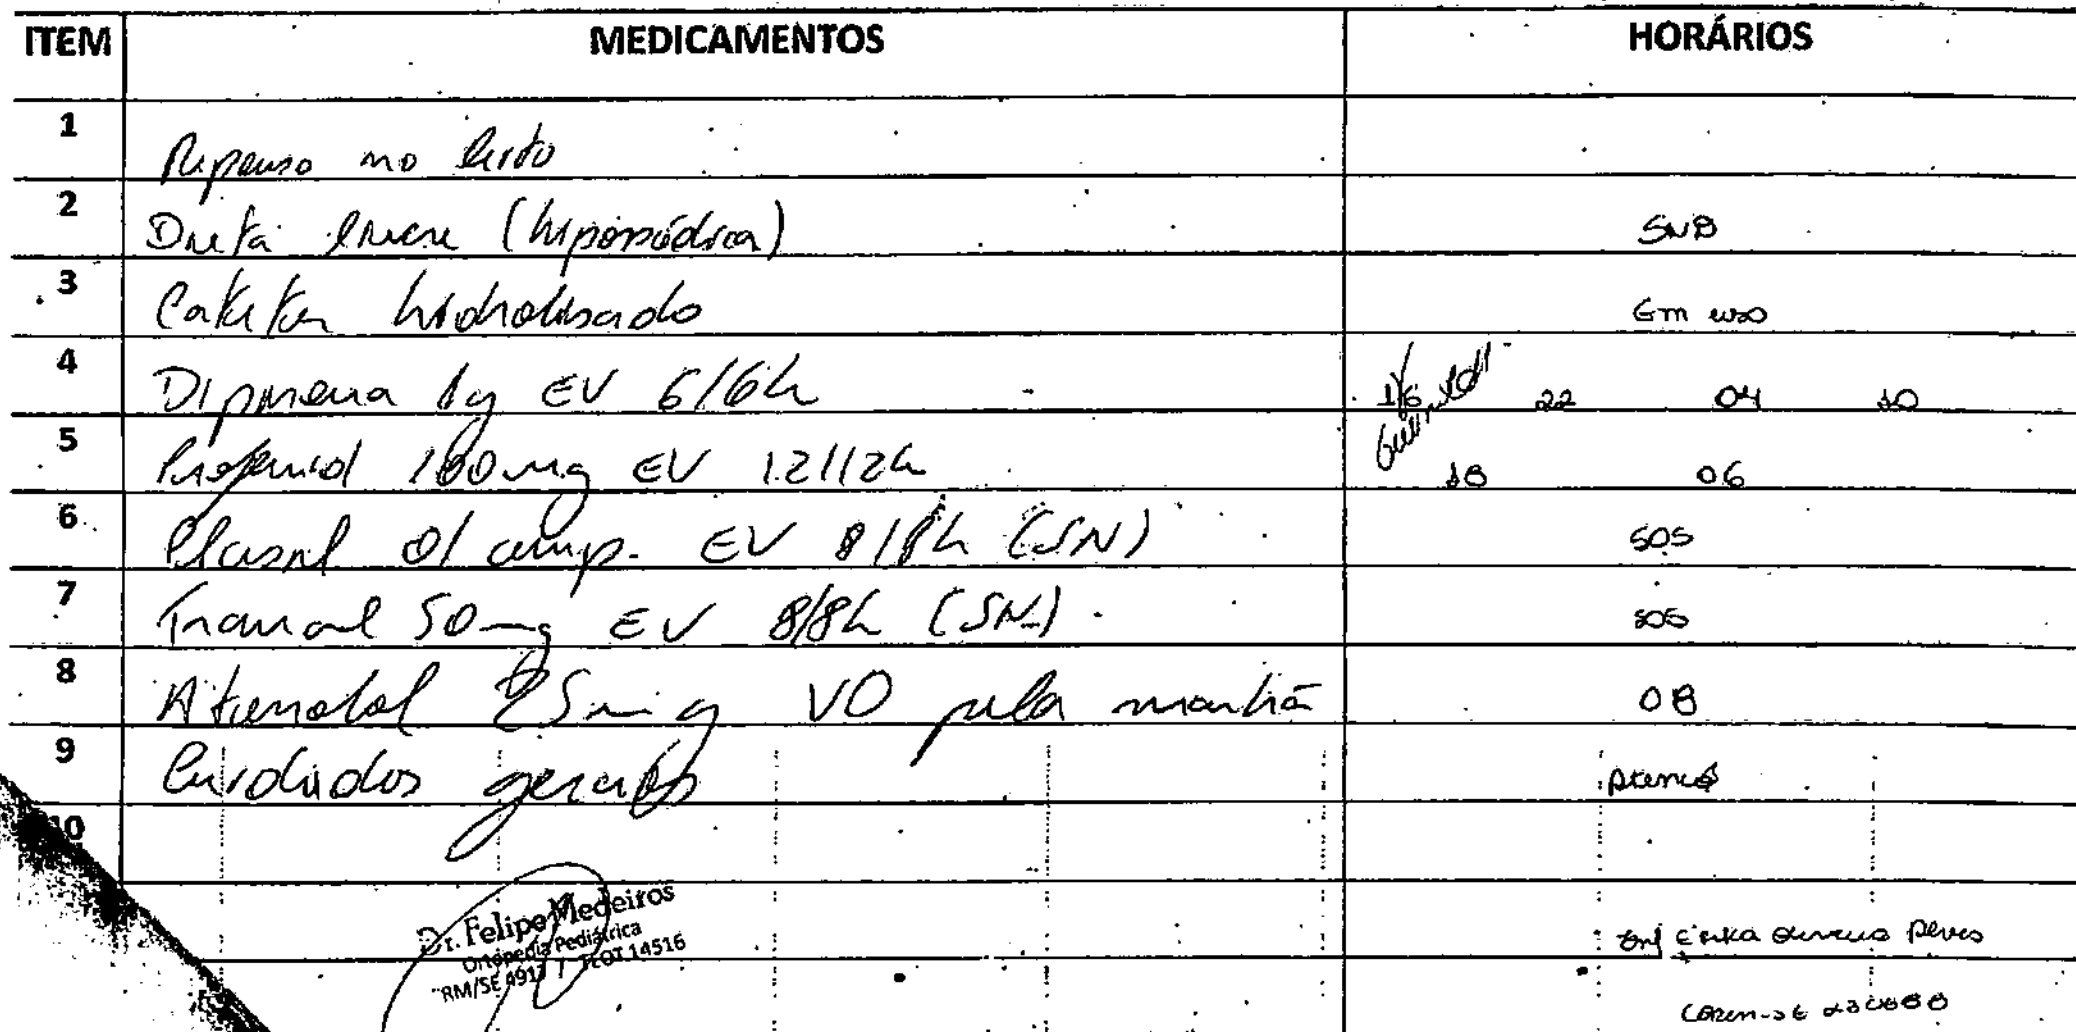 ITEM MEDICAMENTOS HORÁRIOS
1 Repouso no leito
2 Dieta livre (hipossódica) SND
3 Cateter hidrolisado Em uso
4 Dipirona 1g EV 6/6h 16 22 04 10
5 Profenid 100mg EV 12/12h 18 06
6 Plasil 01 amp. EV 8/8h (SN) SOS
7 Tramal 50mg EV 8/8h (SN) SOS
8 Atenolol 25mg VO pela manhã 08
9 Cuidados gerais
10
Dr. Felipe Medeiros
Ortopedia Pediátrica
RM/SE 4917 / TEOT 14516
Enf Erika
COREN-SE